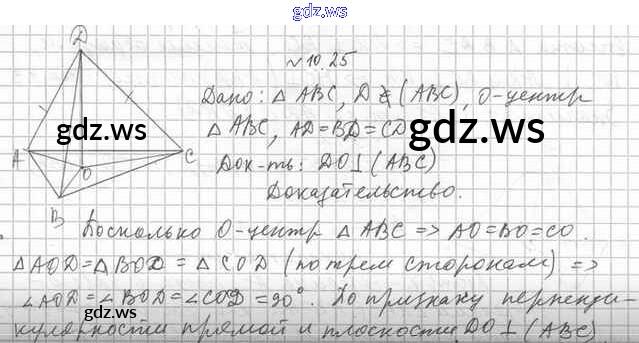 gdz.ws
D
№10.25
Дано: △ ABC, D ∉ (ABC), O-центр
△ ABC, AD=BD=CD
gdz.ws
gdz.ws
A
C
O
B
Док-ть: DO⊥(ABC)
Доказательство.
Поскольку O-центр △ ABC => AO=BO=CO.
△AOD=△BOD=△COD (по трем сторонам) =>
∠AOD=∠BOD=∠COD=90°. По признаку перпенди-
кулярности прямой и плоскости DO⊥(ABC)